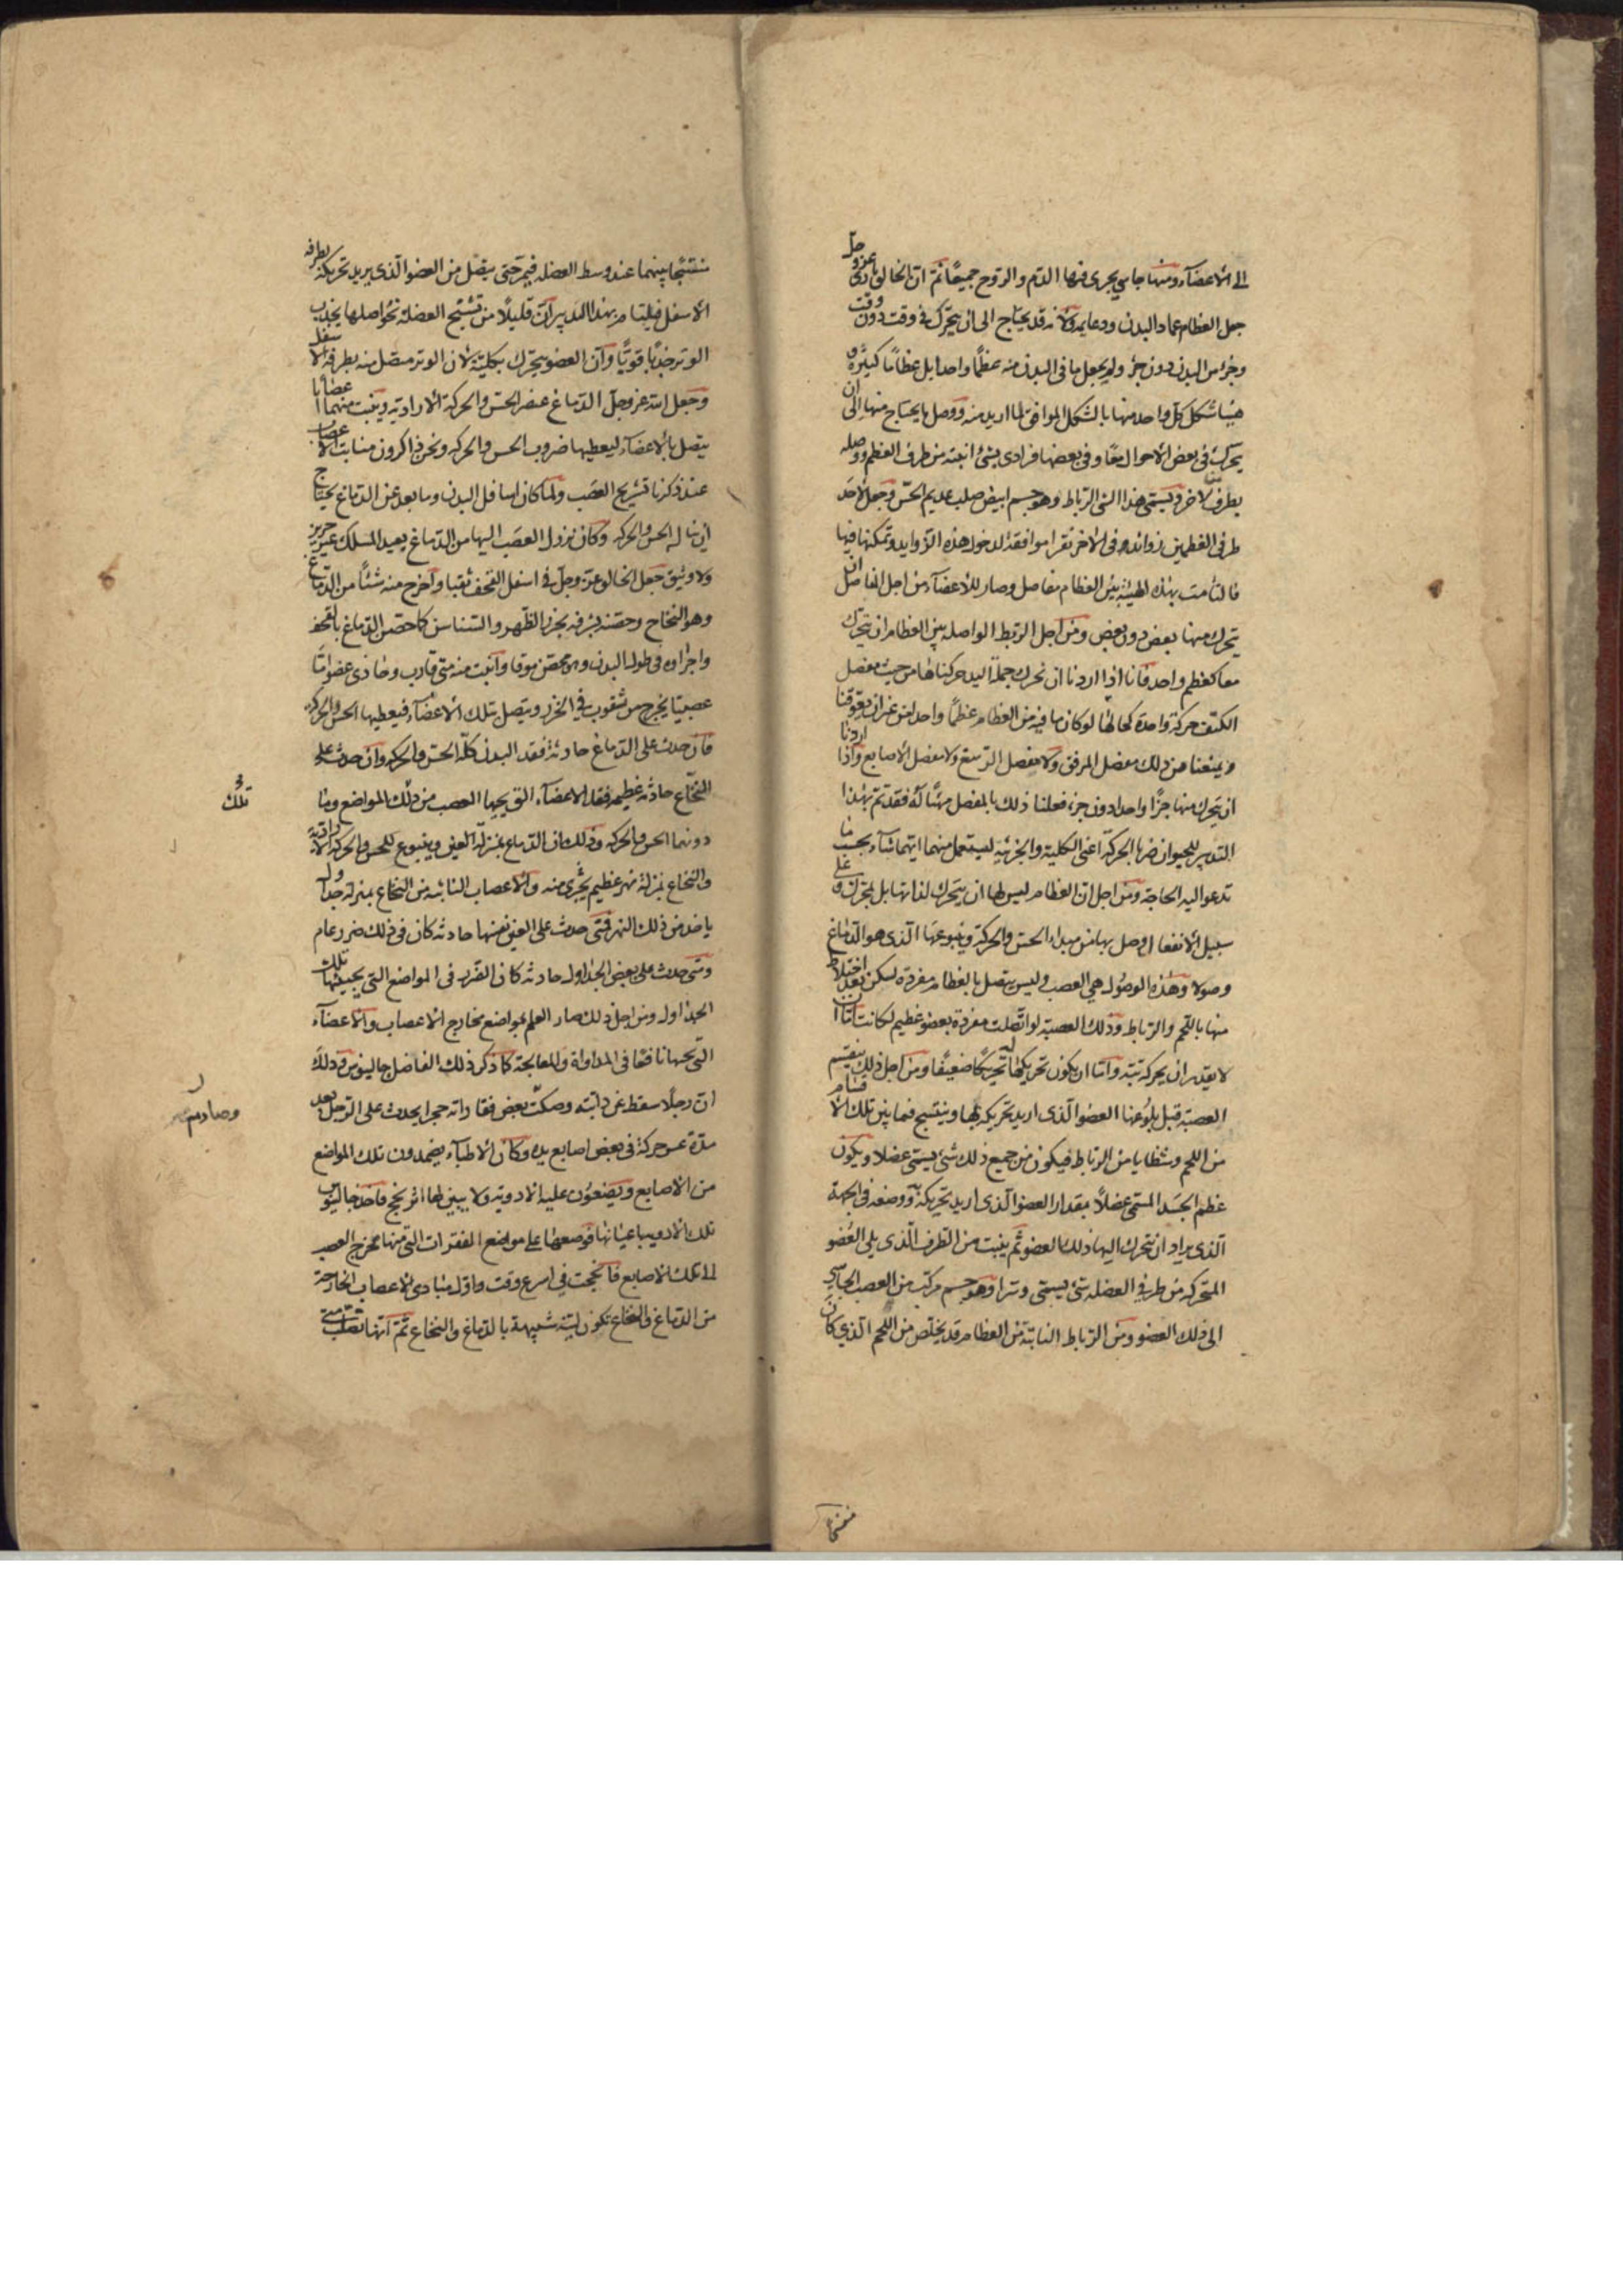 الى الاعضآء ومنها ما يجرى فيها الدم والروح جميعًا ثمّ انّ الخالق عزّ وجلّ
جعل العظام عماد البدن ودعايمه ولانه قد يحتاج الى ان يتحرّك فى وقت دون وقت
وجزء من البدن دون جزء ولم يجعل ما فى البدن منه عظمًا واحدا بل عظامًا كثيرة و
هيّا شكل كلّ واحد منها بالشكل الموافق لما اريد منه ووصل ما يحتاج منها الى ان
يتحرك فى بعض الاحوال معًا وفى بعضها فرادى بشئ انبته من طرف العظم ووصله
بطرف الاخر ويسمّى هذا الشئ الرباط وهو جسم ابيض صلب عديم الحسّ وجعل لاحد
طرفى العظمين زوائد وفى الاخر نقرا موافقة لدخول هذه الزوايد وتمكنها فيها
فالتأمت بهذه الهيئة بين العظام مفاصل وصار للاعضآء من اجل المفاصل ان
يتحرك منها بعض دون بعض ومن اجل الربط الواصله بين العظام ان يتحرّك
معا كعظم واحد فانا اذا اردنا ان نحرك جملة اليد حركناها من حيث مفصل
الكتف حركة واحدة كحالها لو كان ما فيه من العظام عظمًا واحدا من غير ان يعوقنا
ويمنعنا من ذلك مفصل المرفق ولا مفصل الرسغ ولا مفصل الاصابع واذا اردنا
ان يتحرك منها جزءًا واحدا دون جزء فعلنا ذلك بالمفصل مهيّئا له فقد تمّ بهذا
التدبير للحيوان ضربا الحركة اعنى الكلية والجزئية ليستعمل منهما ايتهما شآء بحسب ما
تدعو اليه الحاجة ومن اجل انّ العظام ليس لها ان يتحرك لذاتها بل بمحرّك وعلى
سبيل الانفعال وصل بها من مبداء الحسّ والحركة وينبوعها الّذى هو الدّماغ
وصولا وهذه الوصول هى العصب وليس يتصل بالعظام مفردة لكن بعد اختلاط
منها باللحم والرباط وذلك العصبة لو اتّصلت مفردة بعضو عظيم لكانت امّا ان
لا يقدر ان يحركه بتّة وامّا ان يكون تحريكها له تحريكًا ضعيفًا ومن اجل ذلك ينقسم
العصبة قبل بلوغها العضو الّذى اريد تحريكه بها وينتسج فيما بين تلك الاقسام
من اللحم وشظايا من الرباط فيكون من جميع ذلك شئ يسمّى عضلا ويكون
عظم الجسد المسمّى عضلًا بمقدار العضو الّذى اريد تحريكه به ووضعه فى الجهة
الّذى يراد ان يتحرك اليها ذلك العضو ثم ينبت من الطرف الّذى يلى العضو
المتحركه من طرفى العضله شئ يسمّى وترا وهو جسم مركب من العصب الجائى
الى ذلك العضو ومن الرباط النابتة من العظام قد يخلص من اللحم الّذى كان
منتسجًا
منتسجًا بينهما عند وسط العضله فيمرّ حتى يتصل من العضو الّذى يريد تحريكه بطرفه
الاسفل فيلتام بهذا التدبير انّ قليلًا من تشنج العضلة نحو اصلها يجذب
الوتر جذبًا قويًّا وانّ العضو يتحرّك بكليته لان الوتر متصل منه بطرفه الاسفل
وجعل الله عزوجلّ الدّماغ عنصر الحسّ والحركة الارادية وينبت منهما اعضابا
يتصل بالاعضآء ليعطيها ضروب الحس والحركه ونحن ذاكرون منابت الاعصاب
عند ذكرنا تشريح العصب ولمّا كان اسافل البدن وما بعد عن الدّماغ يحتاج
ان ينال الحس والحركه وكان نزول العصب اليها من الدّماغ بعيد المسلك غير حريز
ولا وثيق جعل الخالق عزّ وجلّ فى اسفل القحف ثقبا واخرج منه شئًا من الدّماغ
وهو النخاع وحصّنه لشرفه بخرز الظّهر والسناسن كما حصّن الدماغ بالقحف
واجراه فى طول البدن وهو محصّن موقا وانبت منه متى قارب وحاذى عضوا مّا
عصبيّا يخرج من ثقوب فى الخرز ويتصل بتلك الاعضآء فيعطيها الحس والحركه
فان حدث على الدّماغ حادثة فقد البدن كلّه الحسّ والحركه وان حدث على
النخاع حادثة عظيمه فقد الاعضآء التى يجيها العصب من ذلك المواضع وما
دونها الحس والحركه وذلك ان الدّماغ بمنزلة العين وينبوع للحس والحركه الارادية
والنخاع بمنزلة نهر عظيم يجرى منه والاعصاب النابته من النخاع بمنزلة جداول
ياخذ من ذلك النهر فمتى حدث على العين نفسها حادثه كان فى ذلك ضرر عام
ومتى حدث على بعض الجداول حادثه كان الضرر فى المواضع التى يجيئها تلك
الجداول ومن اجل ذلك صار العلم بمواضع مخارج الاعصاب والاعضآء
التى تجيها نافعا فى المداواة والمعالجة كما ذكر ذلك الفاضل جالينوس وذلك
انّ رجلًا سقط عن دابّته وصكّت بعض فقاراته حجرا يحدث على الرجل بعد
مدّة عسر حركة فى بعض اصابع يده وكان الاطبآء يضمدون تلك المواضع
من الاصابع ويضعون عليه الادوية ولا يبين لها اثر نجح فاخذ جالينوس
تلك الادويه باعيانها فوضعها على مواضع الفقرات التى منها مخرج العصب
الى تلك الاصابع فانجحت فى اسرع وقت واوّل مبادى الاعصاب الخارجة
من الدّماغ والنخاع تكون ليّنه شبيهة بالدّماغ والنخاع ثمّ انّها تصلب متى
تلك
وصار